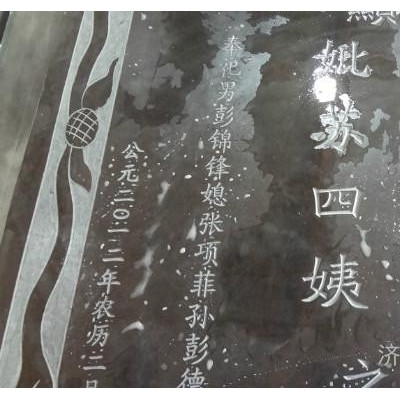 妣苏四姨之
济
奉祀男彭锦锋媳张项菲孙彭德
公元二〇二二年农历二